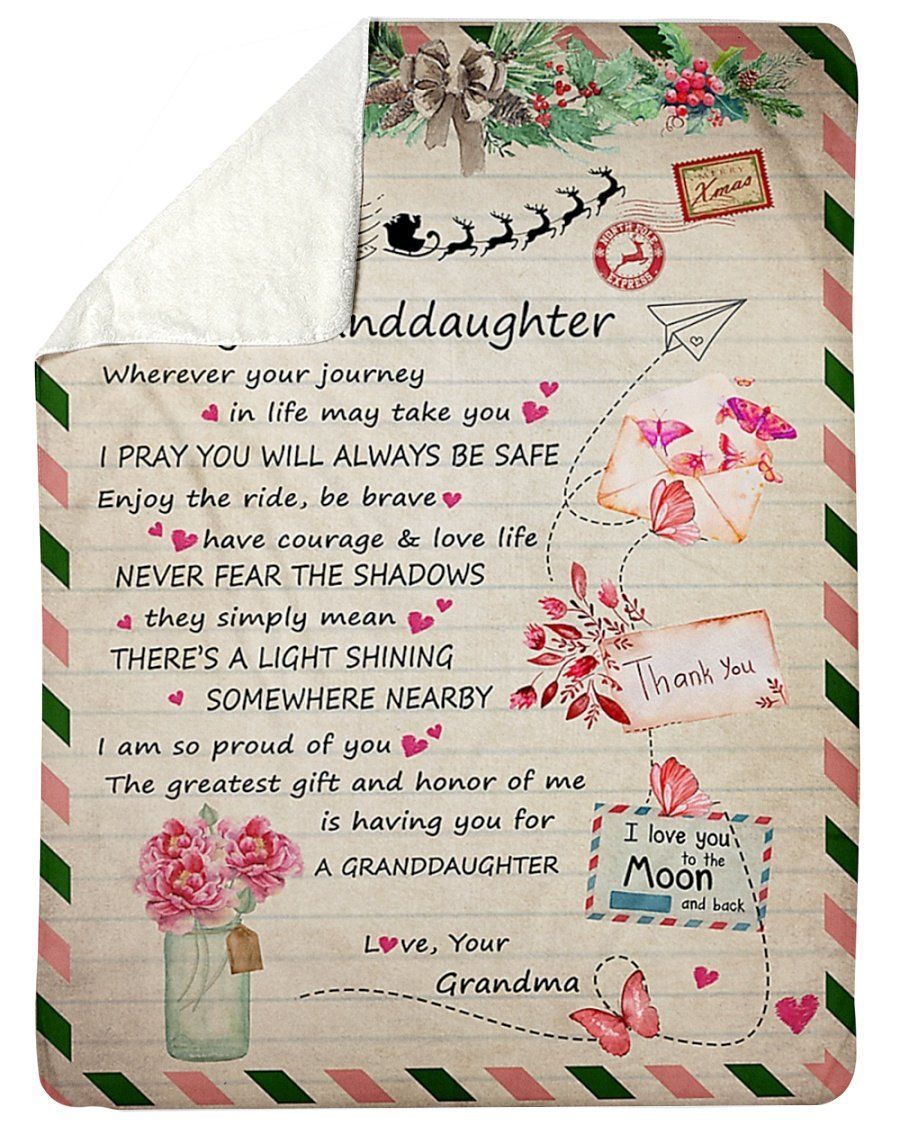 MERRY
Xmas
NORTH POLE
EXPRESS
nddaughter
Wherever your journey
in life may take you
I PRAY YOU WILL ALWAYS BE SAFE
Enjoy the ride, be brave
have courage & love life
NEVER FEAR THE SHADOWS
they simply mean
THERE'S A LIGHT SHINING
SOMEWHERE NEARBY
I am so proud of you
The greatest gift and honor of me
is having you for
A GRANDDAUGHTER
Love, Your
Grandma
Thank You
I love you
to the
Moon
and back